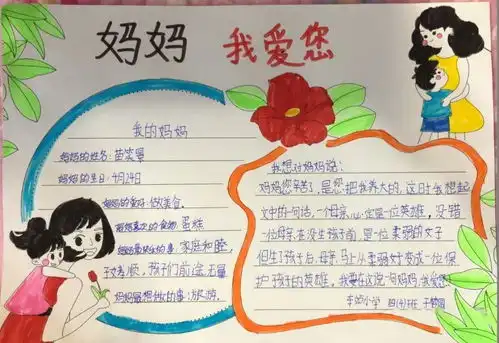 妈妈 我爱您
我的妈妈
妈妈的姓名:苗笑曼
妈妈的生日:9月24日
妈妈的爱好:做美容。
妈妈喜欢的食物:蛋糕
妈妈最快乐的事:家庭和睦,
子女孝顺,孩子们前途无量
妈妈最想做的事:旅游.
我想对妈妈说:
妈妈您辛苦了,是您把我养大的,这时我想起
文中的一句话,一个母亲,心定是一位英雄,没错
一位母亲,在没生孩子前,是一位柔弱的女子
但生了孩子后,母亲,马上从柔弱女子变成一位保
护孩子的英雄,我要在这说一句妈妈,我爱您
小学 四(4)班